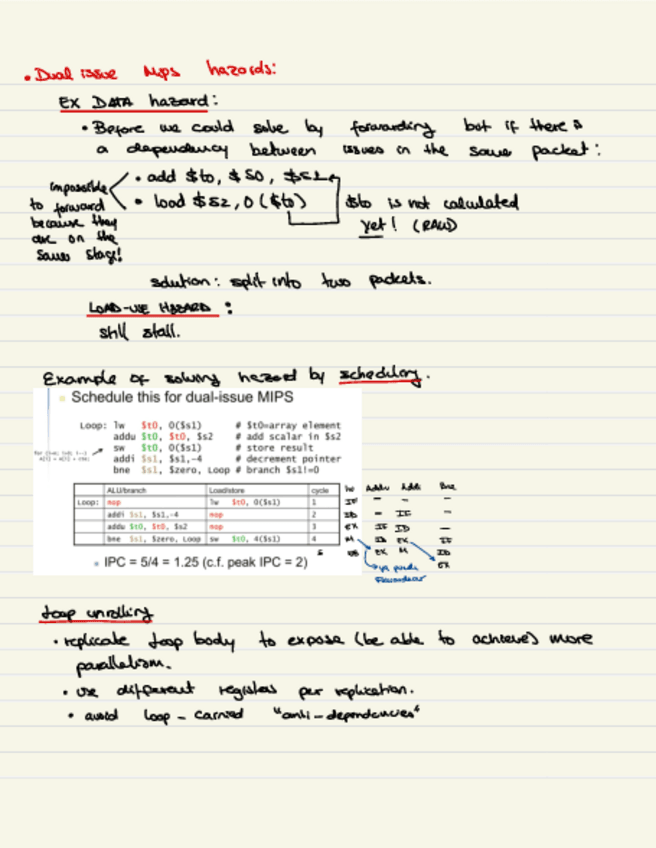 • Dual issue Mips hazards:
EX DATA hazard:
• Before we could solve by forwarding but if there is
a dependency between issues in the same packet:
• add $t0, $s0, $s1
• load $s2, 0($t0)
impossible
to forward
because they
are on the
same stage!
$t0 is not calculated
yet! (RAW)
solution: split into two packets.
LOAD-USE HAZARD:
still stall.
Example of solving hazard by scheduling.
Schedule this for dual-issue MIPS
Loop: lw $t0, 0($s1) # $t0=array element
addu $t0, $t0, $s2 # add scalar in $s2
sw $t0, 0($s1) # store result
addi $s1, $s1,-4 # decrement pointer
bne $s1, $zero, Loop # branch $s1!=0
ALU/branch Load/store cycle
Loop: nop lw $t0, 0($s1) 1
addi $s1, $s1,-4 nop 2
addu $t0, $t0, $s2 nop 3
bne $s1, $zero, Loop sw $t0, 4($s1) 4
5
lw Addu Addi Bne
IF - - -
ID - IF -
EX IF ID -
M ID EX IF
WB EX M ID
EX
ya puede
• IPC = 5/4 = 1.25 (c.f. peak IPC = 2)
Loop unrolling
• replicate loop body to expose (be able to achieve) more
parallelism.
• use different registers per replication.
• avoid loop-carried "anti-dependencies"